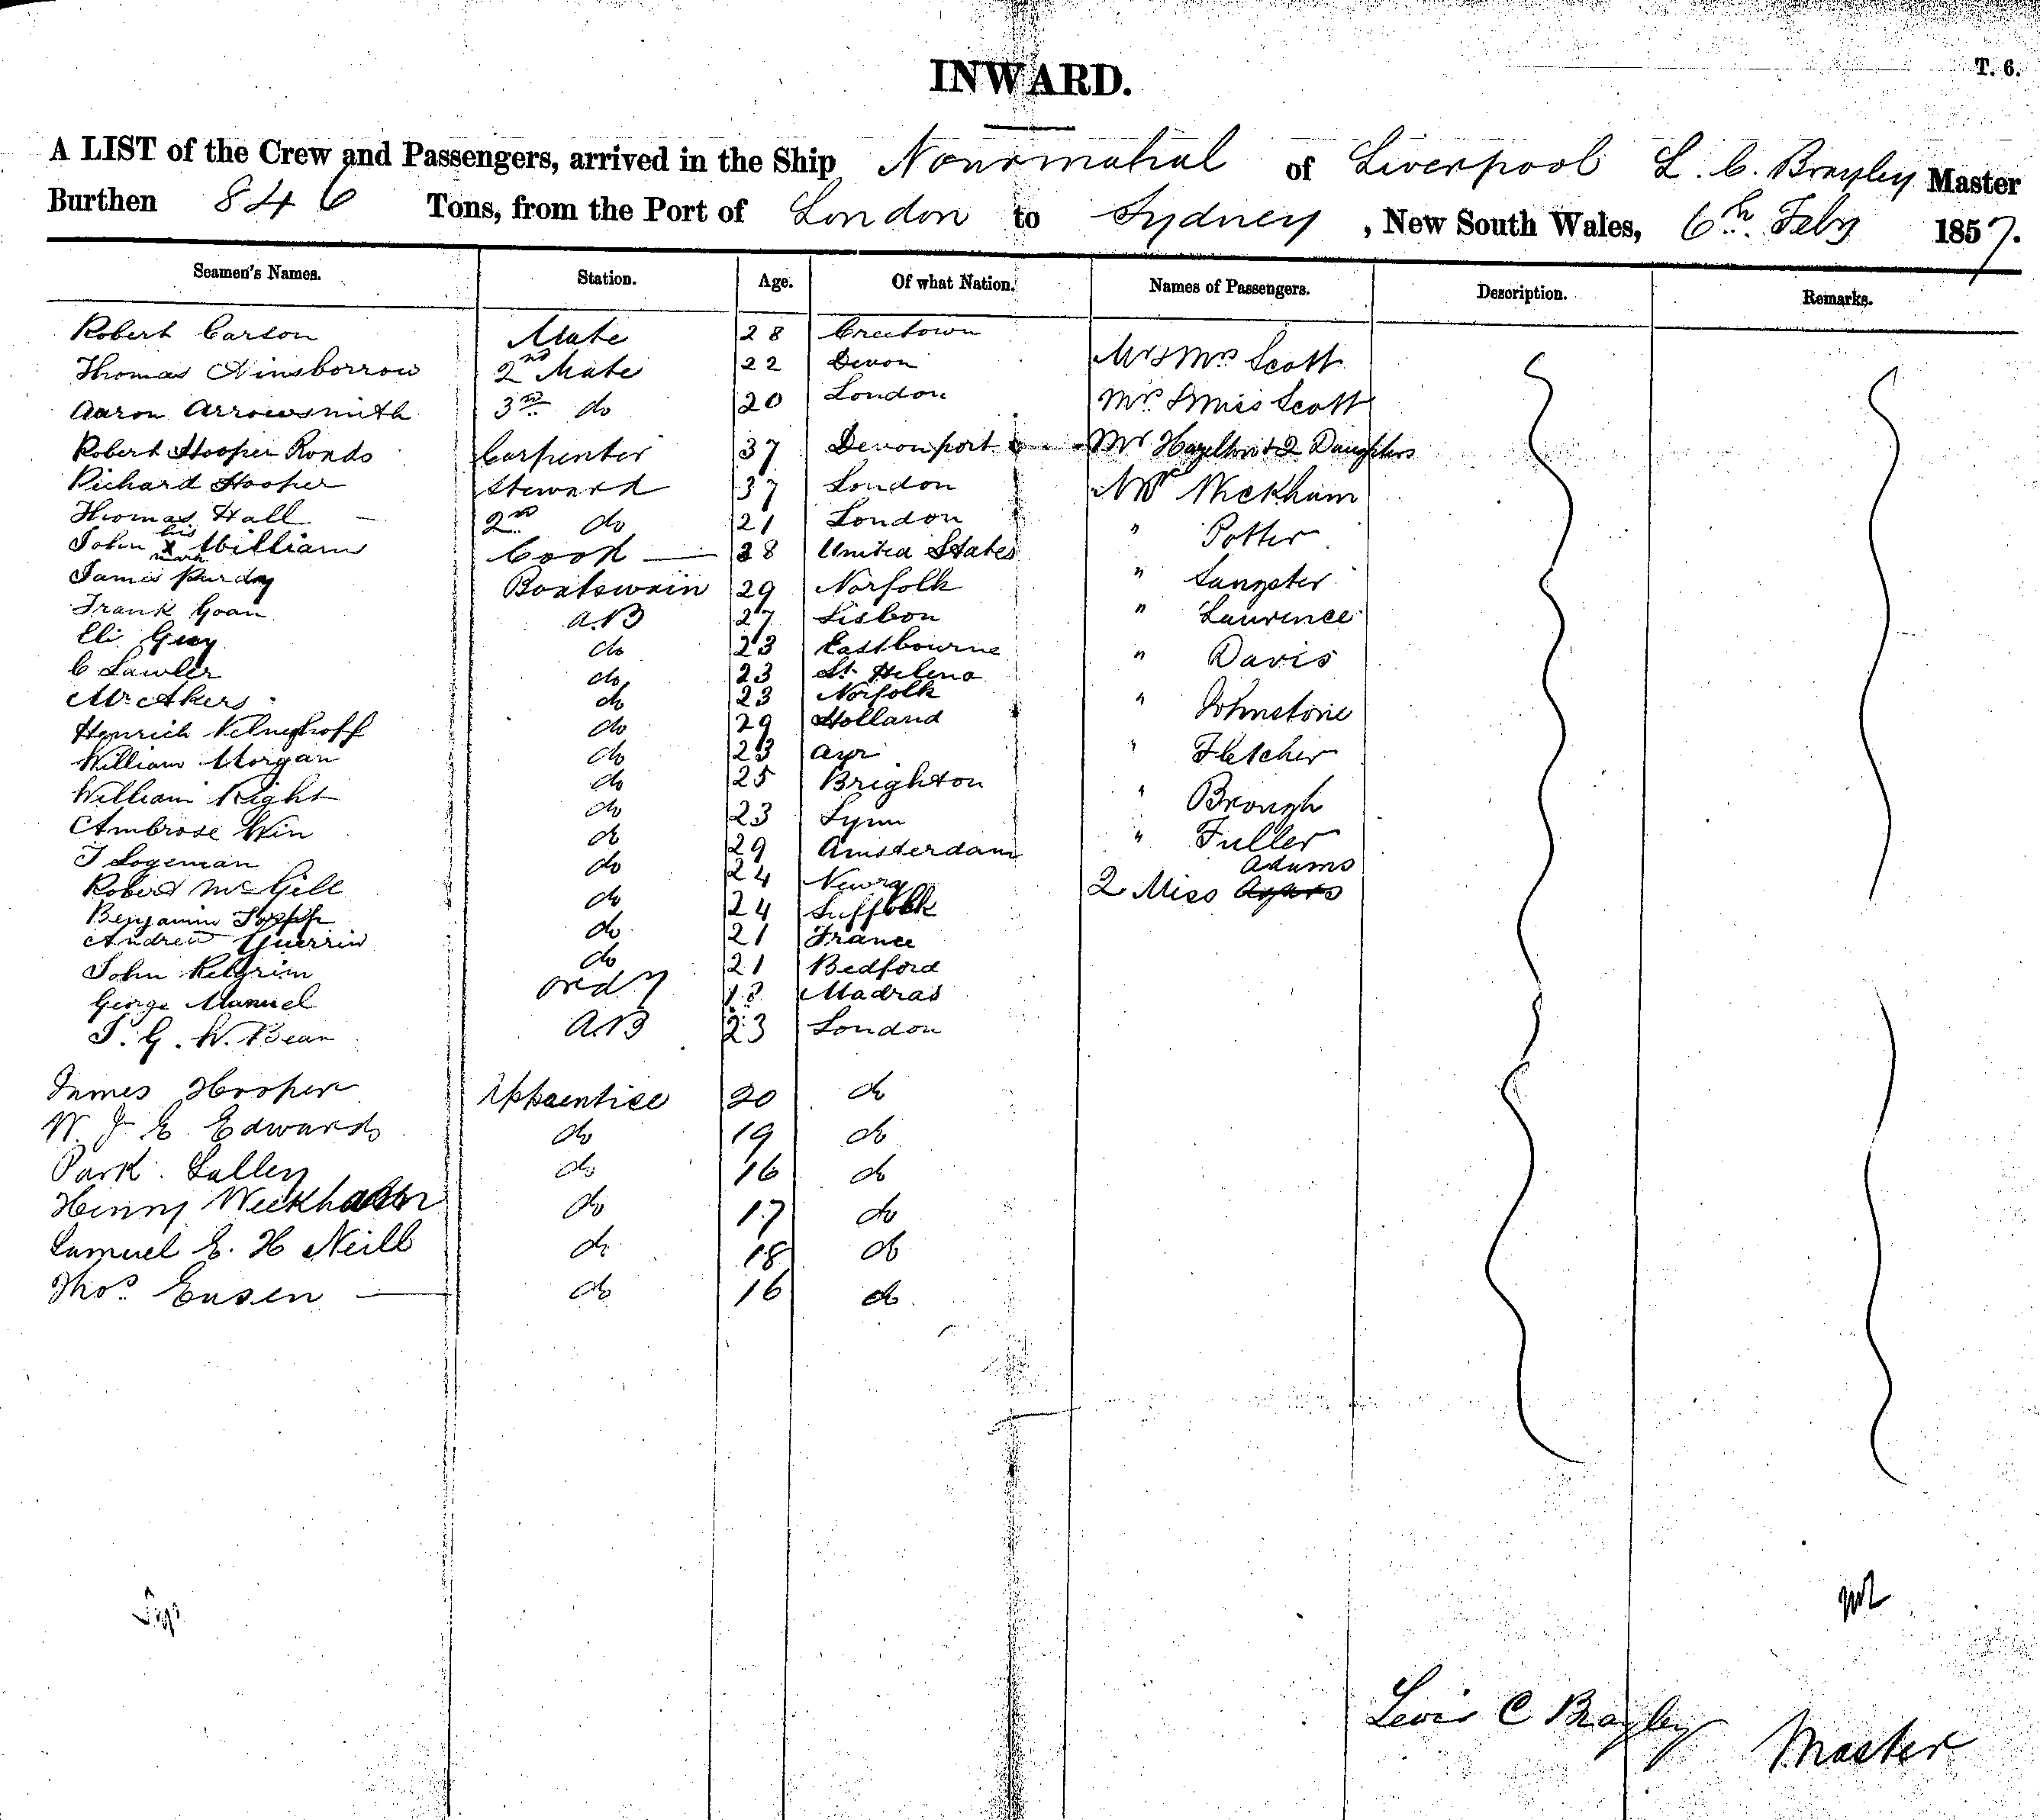 INWARD.
T. 6.
A LIST of the Crew and Passengers, arrived in the Ship Nourmahal of Liverpool L. C. Brayley Master
Burthen 846 Tons, from the Port of London to Sydney, New South Wales, 6th Feby 1857.
Seamen's Names. Station. Age. Of what Nation. Names of Passengers. Description. Remarks.
Robert Carson Mate 28 Creetown Mr & Mrs Scott
Thomas Ainsborrow 2nd Mate 22 Devon
Aaron Arrowsmith 3rd do 20 London Mrs & Miss Scott
Robert Hooper Ronds Carpenter 37 Devonport Mr Hazelton & 2 Daughters
Richard Hooper Steward 37 London Mr Wickham
Thomas Hall 2nd do 21 London " Potter
John his X mark Williams Cook 28 United States
James Purdy Boatswain 29 Norfolk " Sangster
Frank Goan A.B 27 Lisbon " Laurence
Eli Guy do 23 Eastbourne
C Lawler do 23 St Helena " Davis
Wm Akers do 23 Norfolk
Henrich do 29 Holland " Johnstone
William Morgan do 23 Ayr " Fletcher
William Right do 25 Brighton
Ambrose Win do 23 Lynn " Brough
J Logeman do 29 Amsterdam " Fuller
Robert McGill do 24 Newry 2 Miss Adams
Benjamin do 24 Suffolk
Andrew Guerrin do 21 France
John Pilgrim do 21 Bedford
George Manuel Ordy 18 Madras
J. G. W. Bean A.B 23 London
James Hooper Apprentice 20 do
W. J. E. Edwards do 19 do
Park Lalley do 16 do
Henry Wickham do 17 do
Samuel E. H Neill do 18 do
Thos. Easen do 16 do
Lewis C Brayley Master